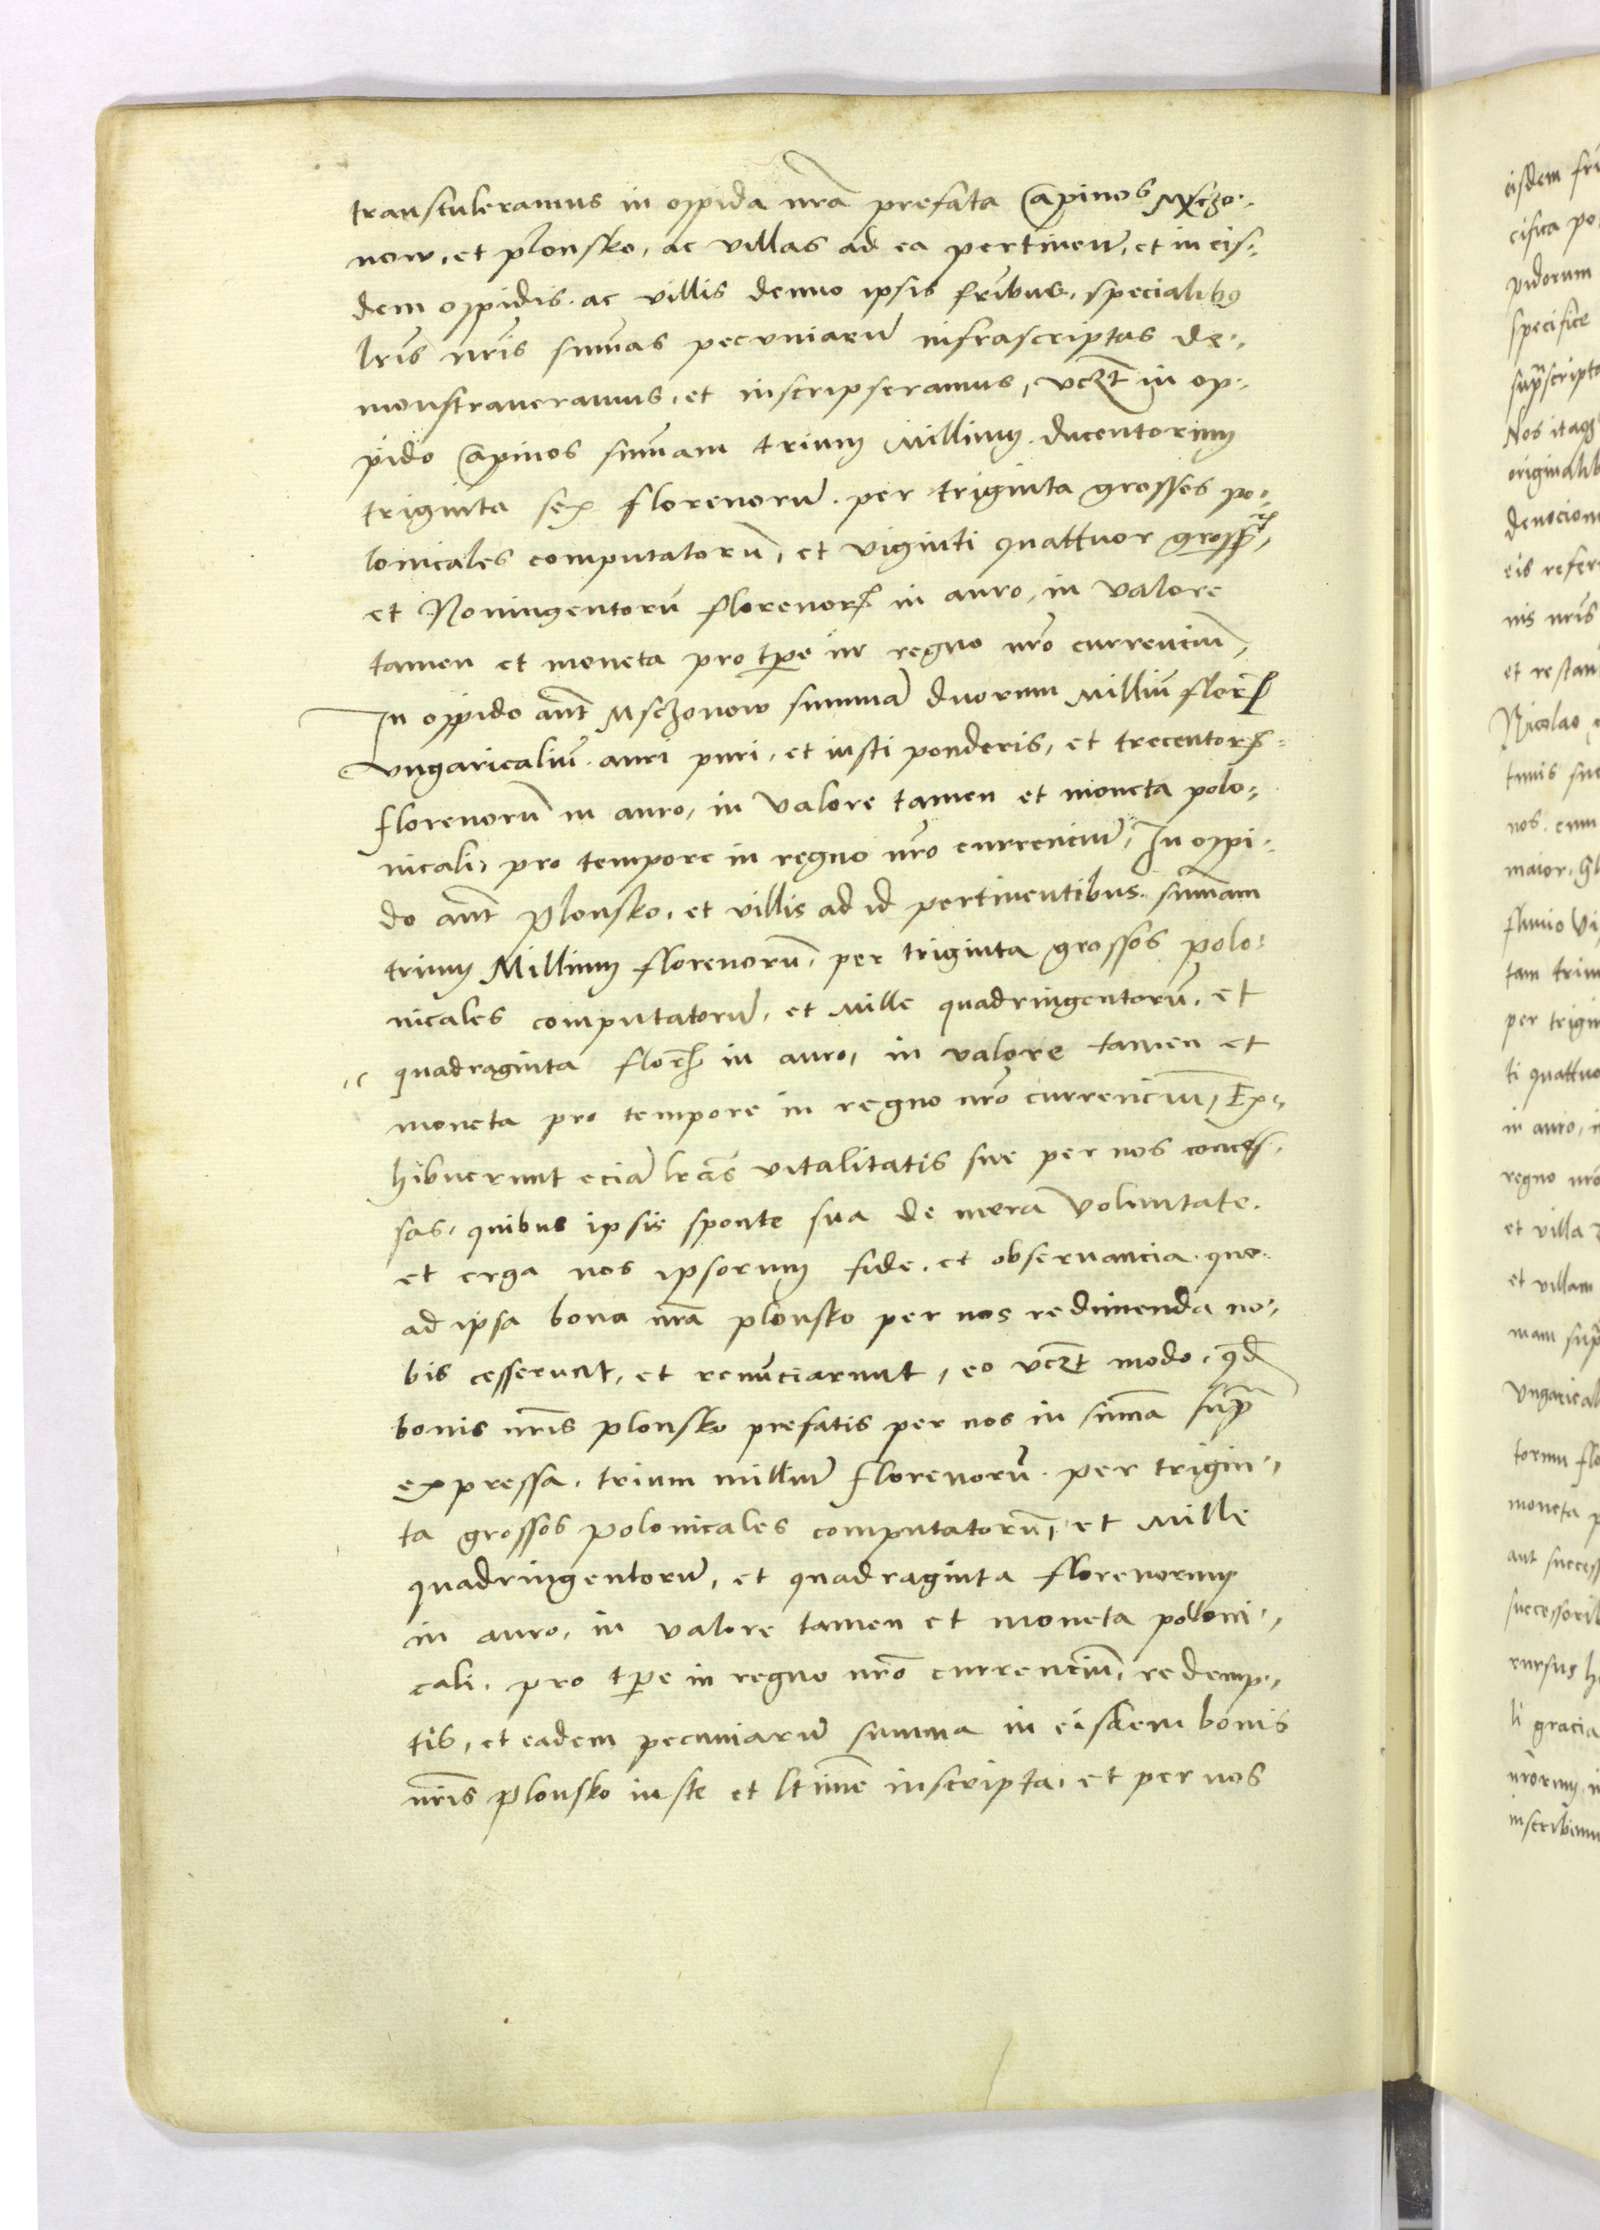 transtuleramus in oppida nrã prefata Capinos Msczo-
now, et plonsko, ac villas ad ea pertinen̄, et in eis-
dem oppidis ac villis denuo ipsis frībus, specialibꝰ
lrīs nrīs summas pecuniarū infrascriptas de-
monstraveramus, et inscripseramus, vczt in op-
pido Capinos summam trium Millium ducentorum
triginta sex florenorū per triginta grossos po-
lonicales computatorū, et viginti quattuor grossorꝝ,
et Noningentorū florenorꝝ in auro, in valore
tamen et moneta pro tp̄e in regno nrō currenciū,
In oppido aūt Msczonow summā duorum Milliū florꝝ
Vngaricaliū auri puri, et iusti ponderis, et trecentorꝝ
florenorū in auro, in valore tamen et moneta polo-
nicali, pro tempore in regno nrō currenciū, In oppi-
do aūt Plonsko, et villis ad id pertinentibus sūmam
trium Millium florenorū, per triginta grossos polo-
nicales computatorū, et Mille quadringentorū, et
quadraginta florꝝ in auro, in valore tamen et
moneta pro tempore in regno nrō currenciū, Ex-
hibuerunt eciā lrās vitalitatis sue per nos conces-
sas, quibus ipsis sponte sua de mera voluntate
et erga nos ipsorum fide, et observancia quo
ad ipsa bona nrā plonsko per nos redimenda no-
bis cesserunt, et renūciarunt, eo vczt modo, qd̄
bonis nrīs plonsko prefatis per nos in sūma supra
expressa, trium milliū florenorū per trigin-
ta grossos polonicales computatorū, et Mille
quadringentorū, et quadraginta florenorum
in auro, in valore tamen et moneta polloni-
cali, pro tp̄e in regno nrō currenciū, redemp-
tis, et eadem pecuniarū summa in eisdem bonis
nrīs Plonsko iuste et ltīme inscripta, et per nos
eisdem
cifica
pidorum
specifice
Nos itaqꝫ
eis
nis nrīs
Nicolao
nos cum
maior
tam
in auro
et villa
et villam
moneta
rursus
li gracia